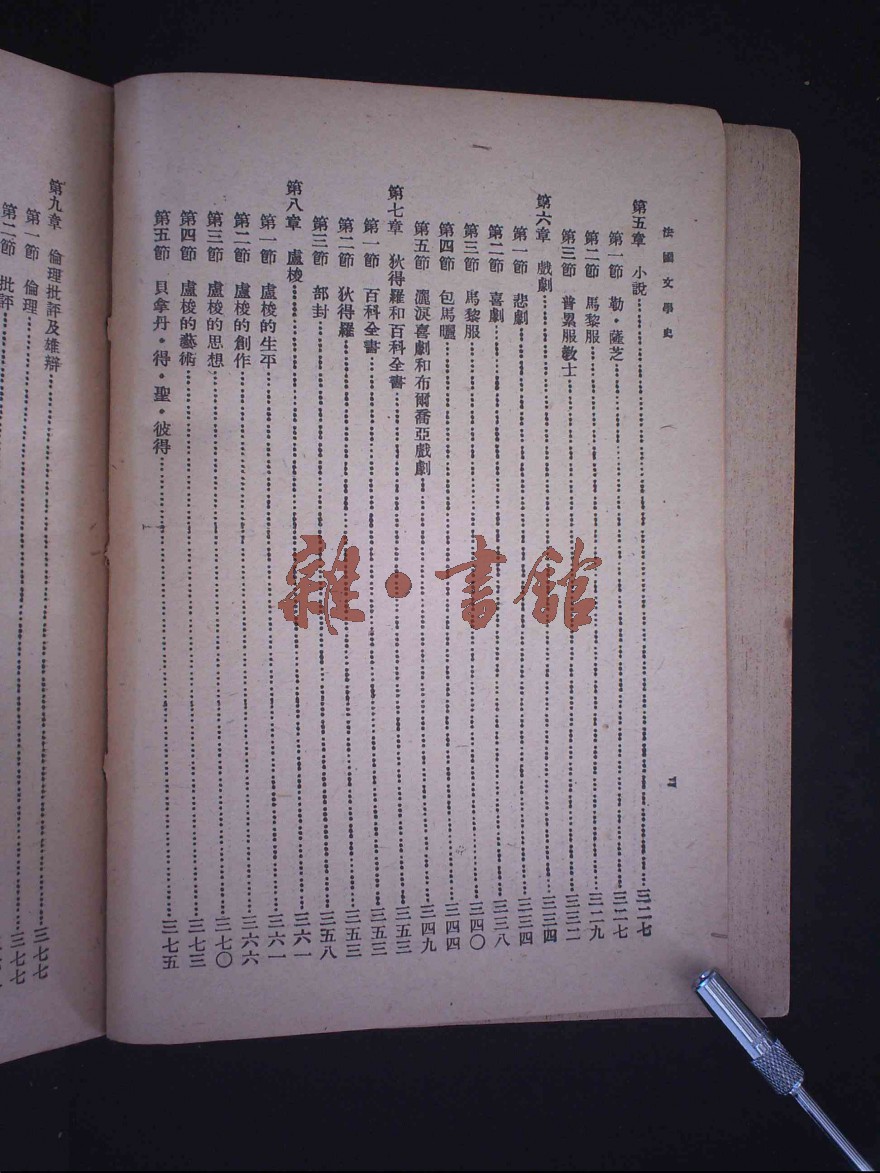 法國文學史
第五章 小說 三二七
第一節 勒·薩芝 三二七
第二節 馬黎服 三二九
第三節 普累服敎士 三三二
第六章 戲劇 三三四
第一節 悲劇 三三四
第二節 喜劇 三三八
第三節 馬黎服 三四〇
第四節 包馬曬 三四四
第五節 灑淚喜劇和布爾喬亞戲劇 三四九
第七章 狄得羅和百科全書 三五三
第一節 百科全書 三五三
第二節 狄得羅 三五三
第三節 部封 三五八
第八章 盧梭 三六一
第一節 盧梭的生平 三六一
第二節 盧梭的創作 三六六
第三節 盧梭的思想 三七〇
第四節 盧梭的藝術 三七三
第五節 貝拿丹·得·聖·彼得 三七五
第九章 倫理批評及雄辯 三七七
第一節 倫理 三七七
第二節 批評
雜·書館